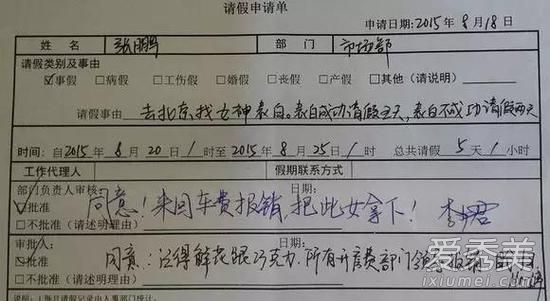 请假申请单
申请日期:2015年8月18日
姓名 张鹏 部门 市场部
请假类别及事由
☑事假 □病假 □工伤假 □婚假 □丧假 □产假 □其他(请说明)
请假事由 去北京找女神表白。表白成功请假五天,表白不成功请假两天
时间:自2015年8月20日1时至2015年8月25日1时 总共请假5天1小时
工作代理人 假期联系方式
部门负责人审核: 日期:
☑批准 同意!来回车费报销,把此女拿下!
□不批准(请述明理由)
审批人: 日期:
☑批准 同意!记得鲜花跟巧克力,所有开房费部门领导报销
□不批准(请述明理由)
爱秀美